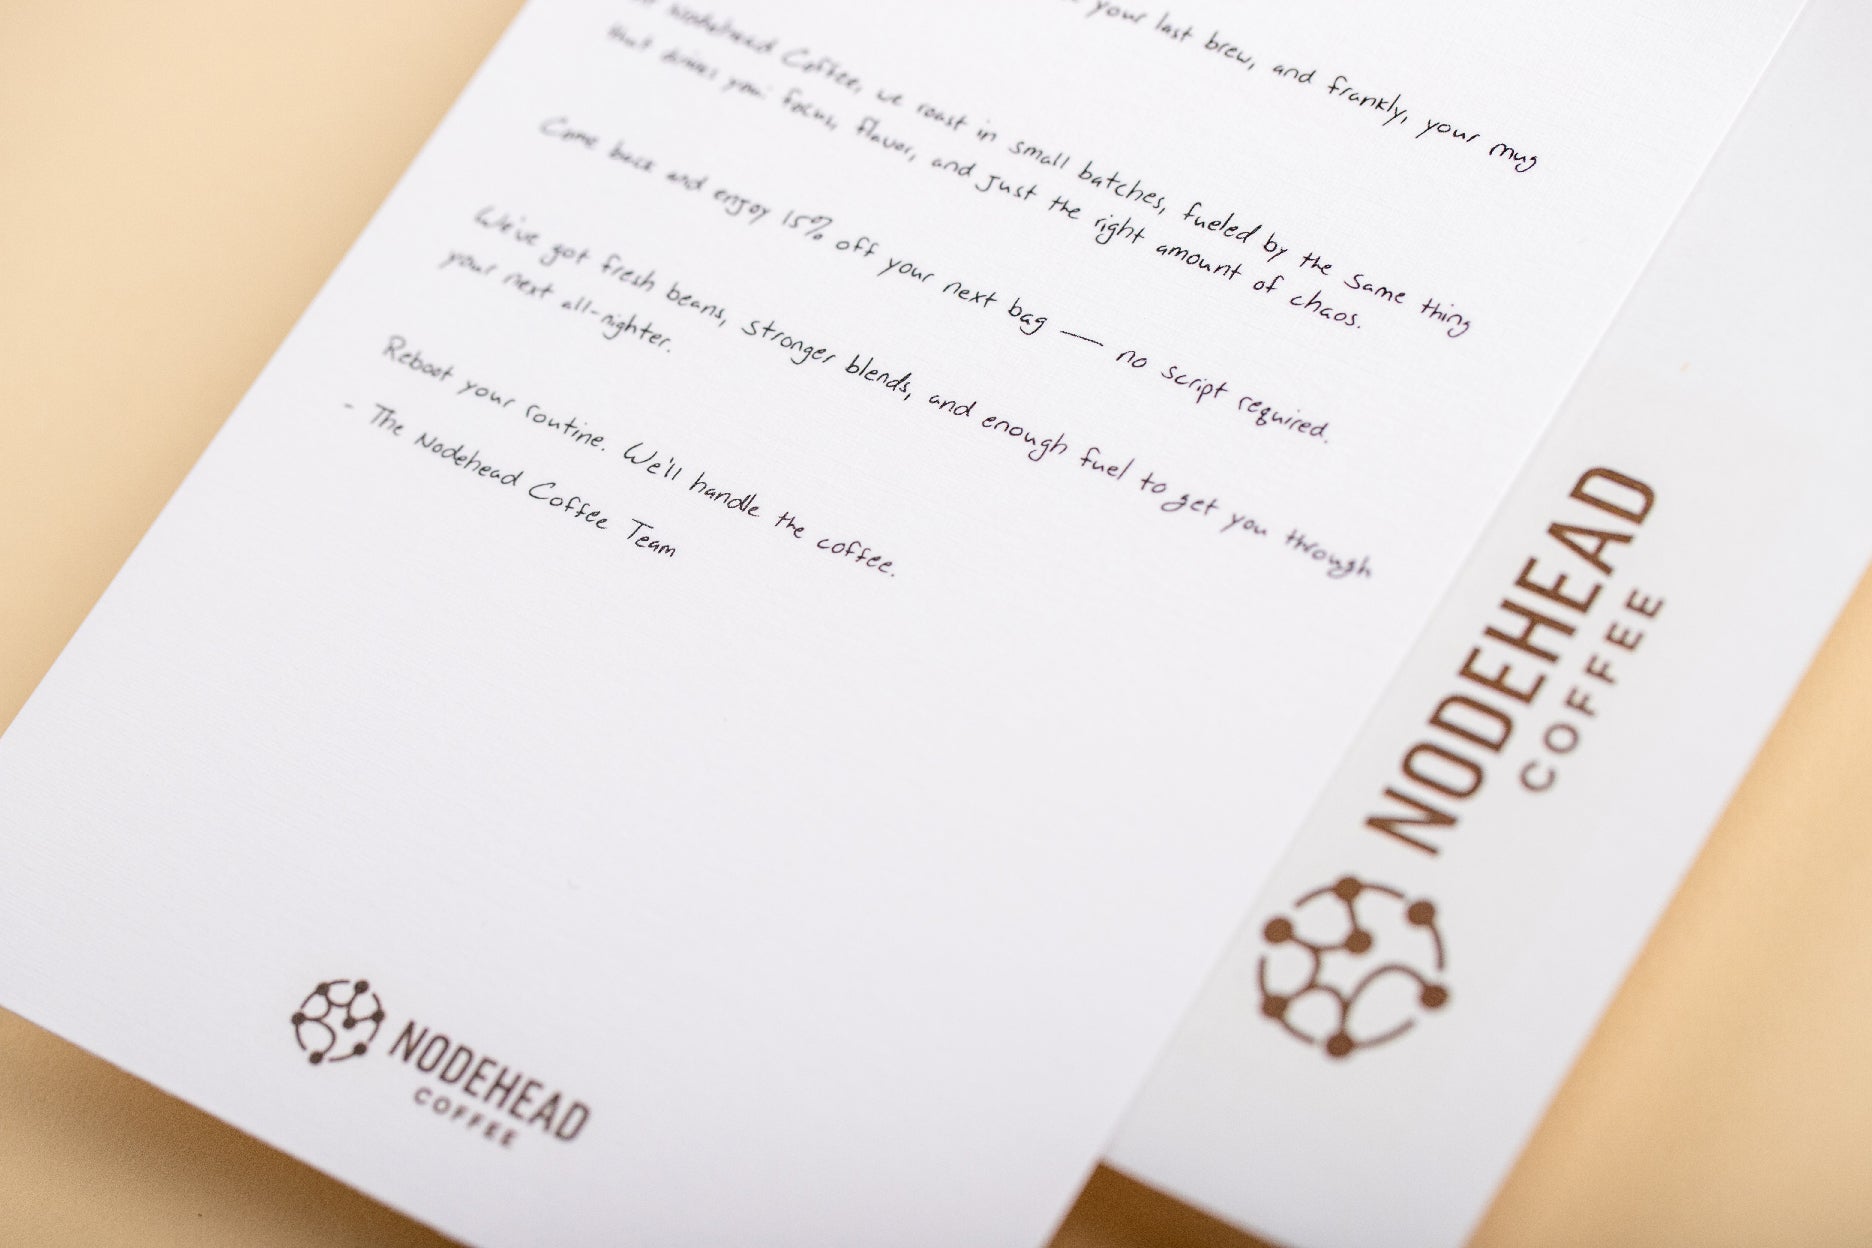 your last brew, and frankly, your mug
Nodehead Coffee, we roast in small batches, fueled by the same thing
that drives you: focus, flavor, and just the right amount of chaos.
Come back and enjoy 15% off your next bag — no script required.
We've got fresh beans, stronger blends, and enough fuel to get you through
your next all-nighter.
Reboot your routine. We'll handle the coffee.
- The Nodehead Coffee Team
NODEHEAD
COFFEE
NODEHEAD
COFFEE